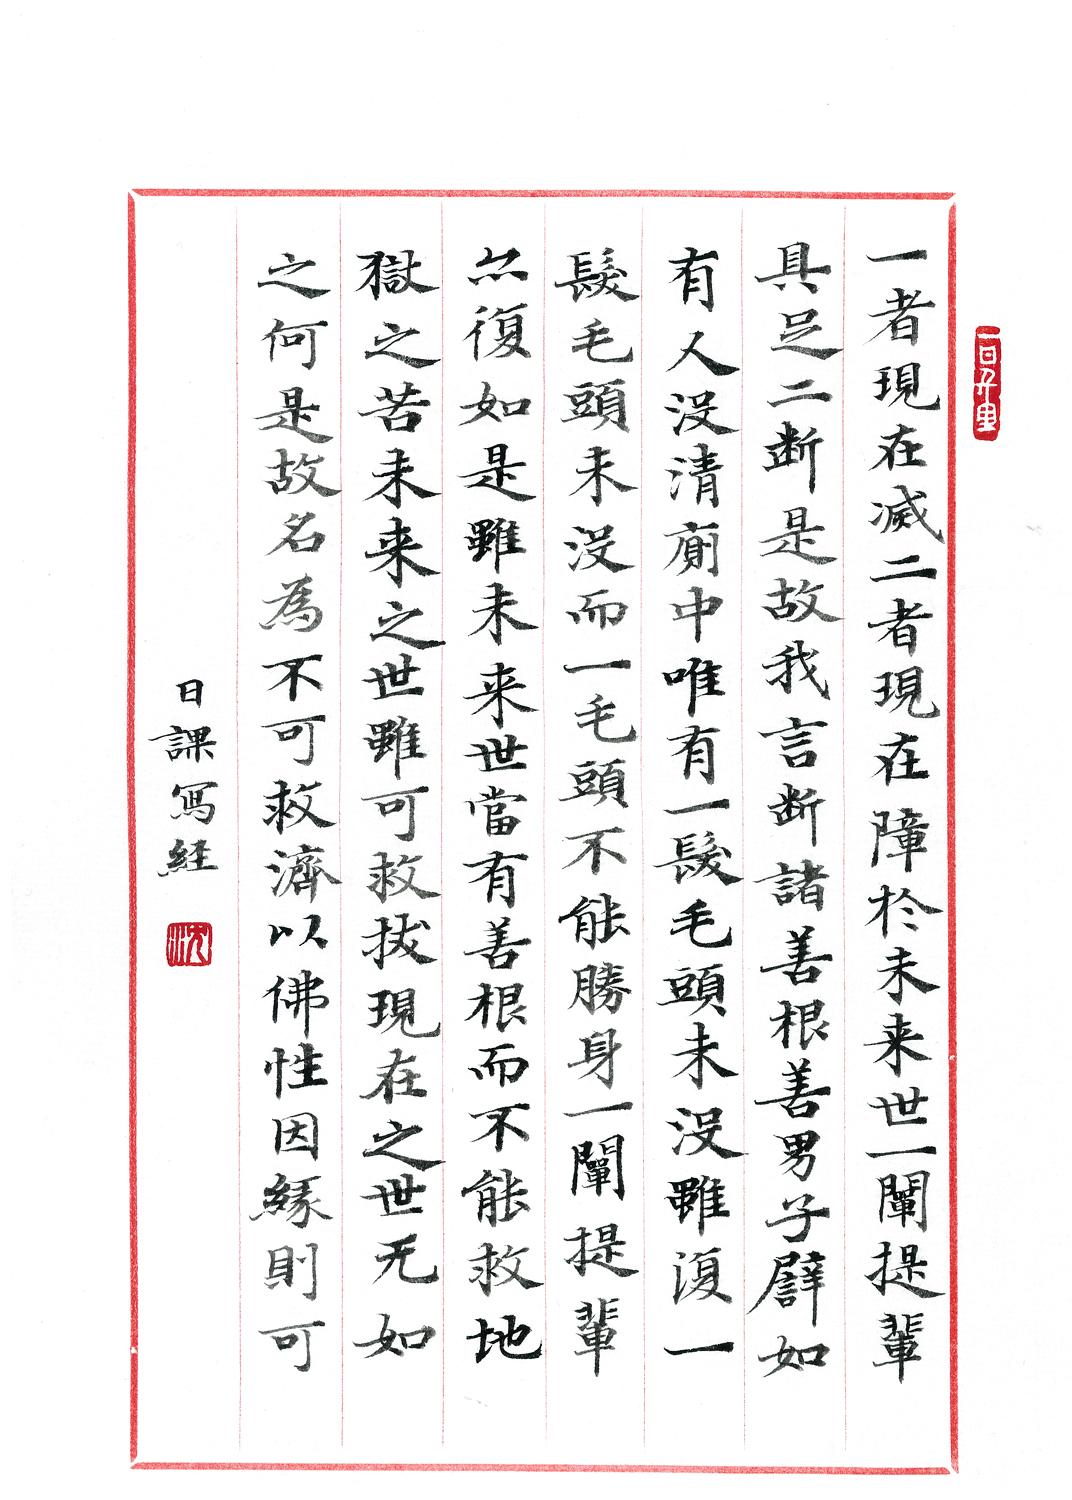 一者現在滅二者現在障於未来世一闡提輩
具足二断是故我言断諸善根善男子譬如
有人没清廁中唯有一髮毛頭未没雖復一
髮毛頭未没而一毛頭不能勝身一闡提輩
亦復如是雖未来世當有善根而不能救地
獄之苦未来之世雖可救拔現在之世无如
之何是故名為不可救濟以佛性因緣則可
日課寫経
沈